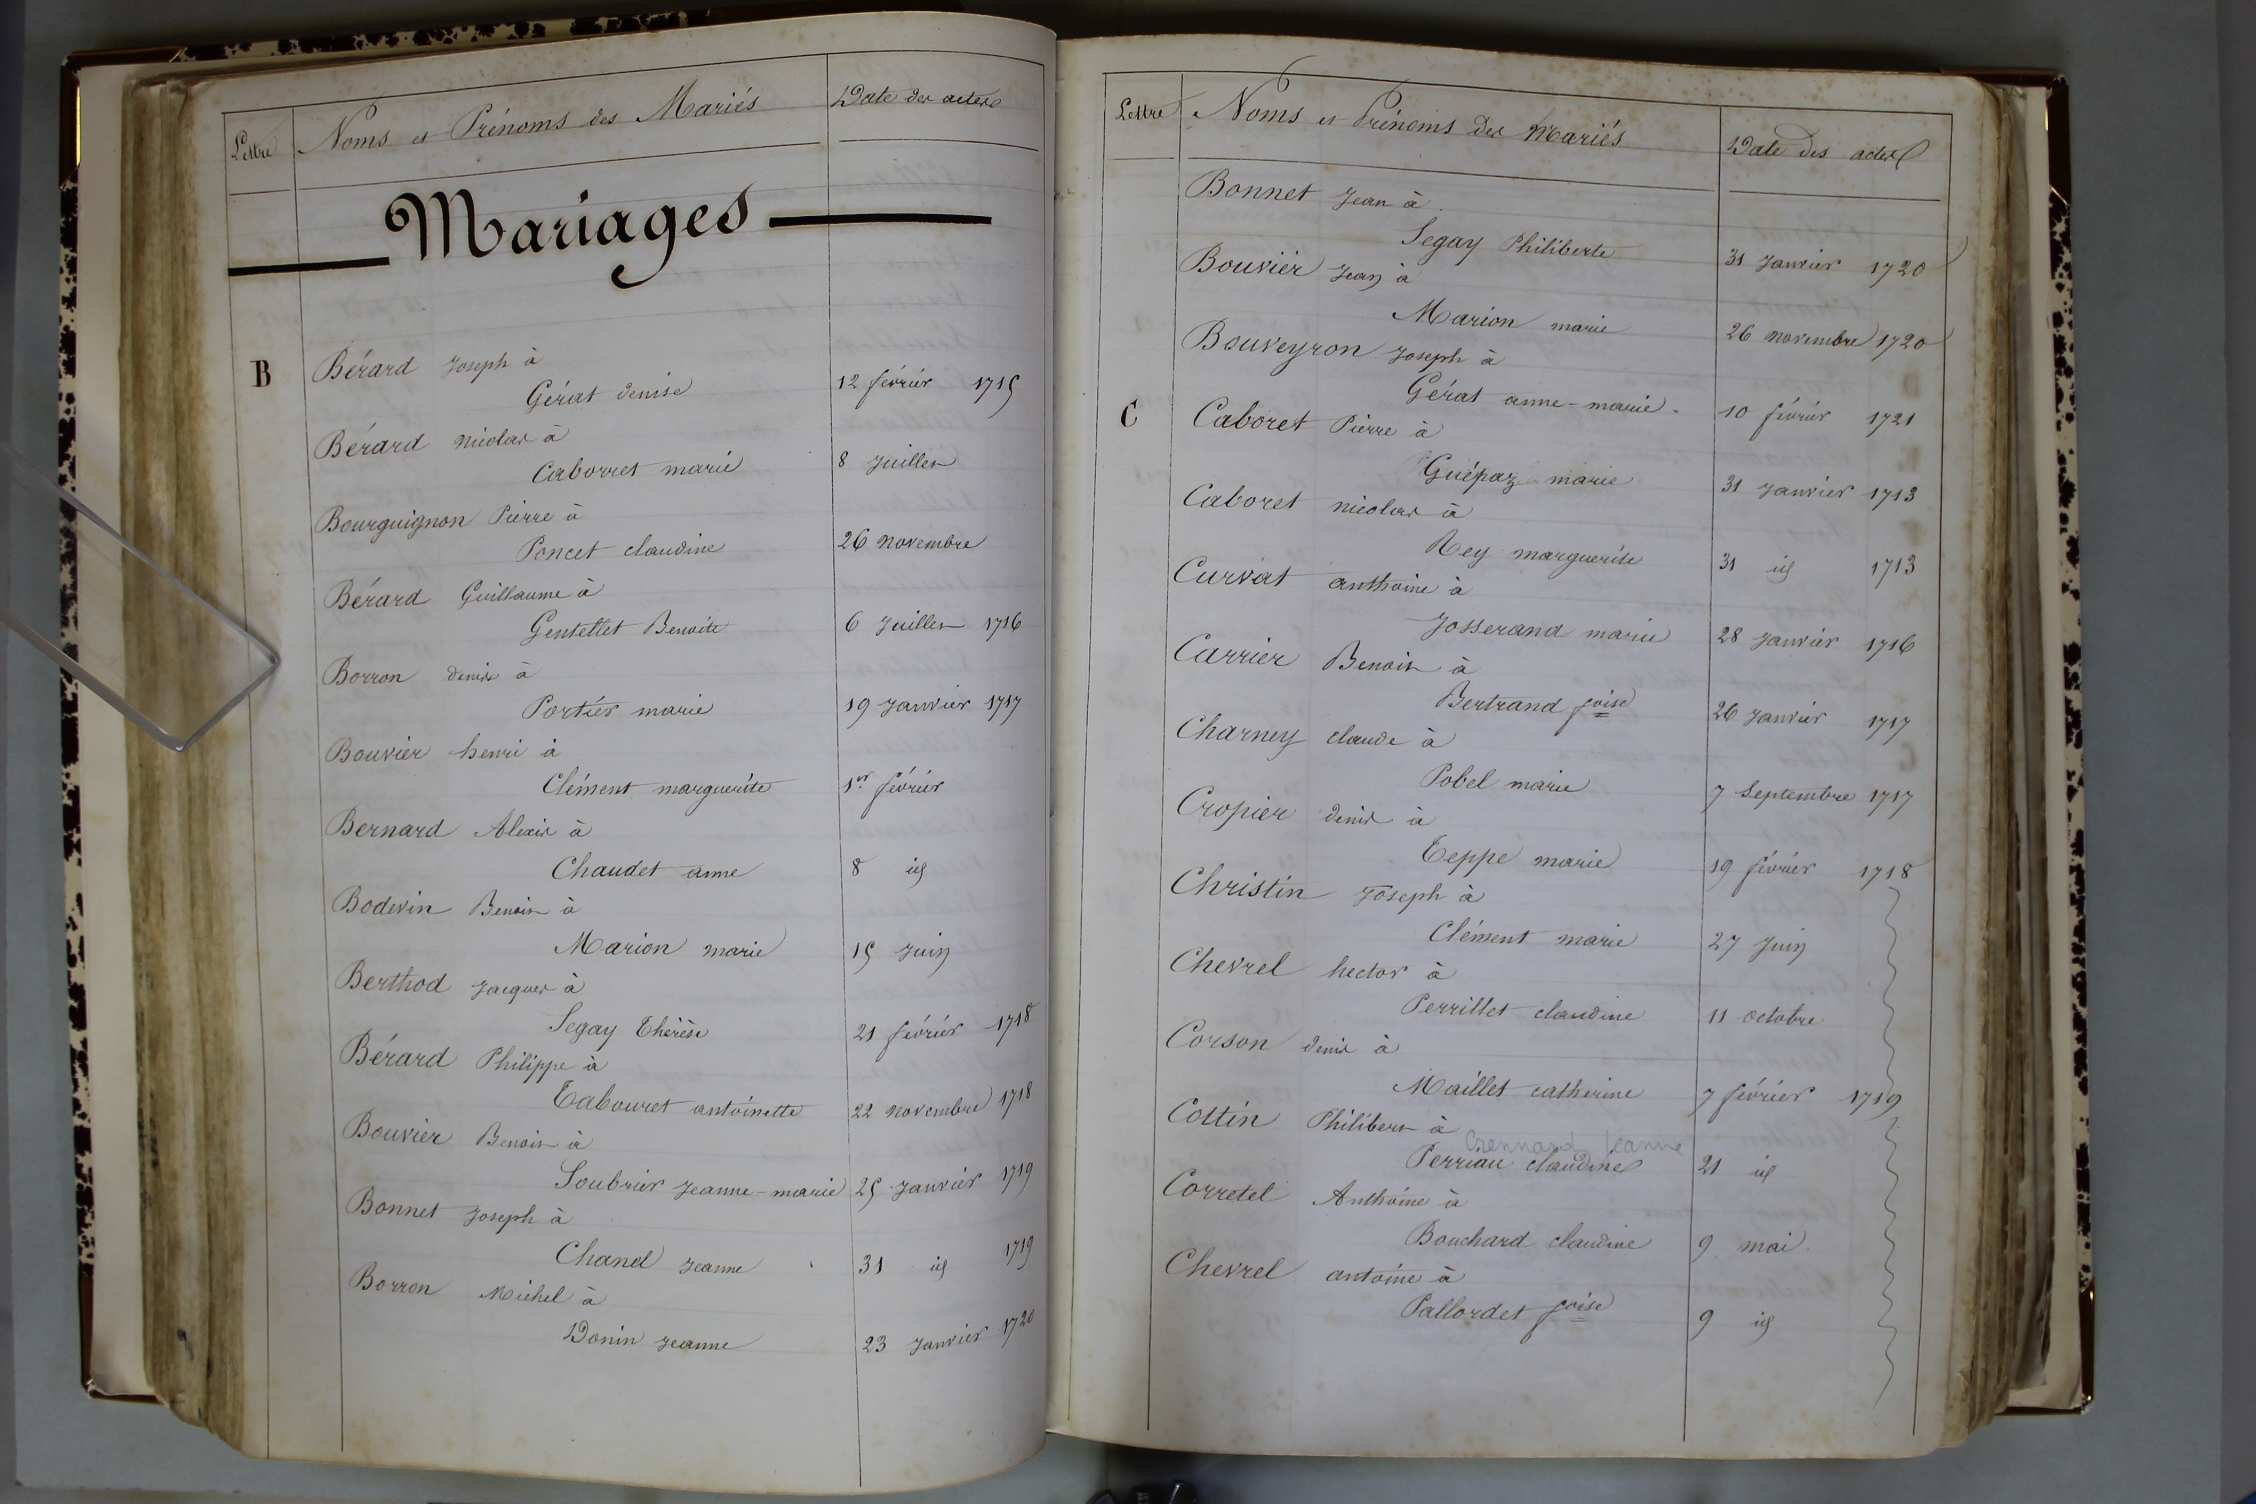 Lettre Noms et Prénoms des Mariés Date des actes
Mariages
B Bérard Joseph à
Gérat denise 12 février 1715
Bérard nicolas à
Caborret marie 8 Juillet
Bourguignon Pierre à
Poncet claudine 26 novembre
Bérard Guillaume à
Gentellet Benoite 6 Juillet 1716
Borron denis à
Portier marie 19 Janvier 1717
Bouvier henri à
Clément marguerite 1er février
Bernard Alexis à
Chaudet anne 8 id
Bodevin Benoit à
Marion marie 15 Juin
Berthod Jacques à
Segay Thérèse 21 février 1718
Bérard Philippe à
Tabouret antoinette 22 novembre 1718
Bouvier Benoit à
Soubrier Jeanne-marie 25 Janvier 1719
Bonnet Joseph à
Chanel Jeanne 31 id 1719
Borron Michel à
Donin Jeanne 23 Janvier 1720
Lettre Noms et Prénoms des Mariés Date des actes
Bonnet Jean à
Segay Philiberte 31 Janvier 1720
Bouvier Jean à
Marion marie 26 novembre 1720
Bouveyron Joseph à
Gérat anne-marie 10 février 1721
C Caboret Pierre à
Guépaz marie 31 Janvier 1713
Caboret nicolas à
Rey marguerite 31 id 1713
Curvat anthoine à
Josserand marie 28 Janvier 1716
Carrier Benoit à
Bertrand foise 26 Janvier 1717
Charney claude à
Pobel marie 7 Septembre 1717
Cropier denis à
Teppe marie 19 février 1718
Christin Joseph à
Clément marie 27 Juin
Chevrel hector à
Perrillet claudine 11 octobre
Corson denis à
Maillet catherine 7 février 1719
Cottin Philibert à
Crennard Jeanne
Perriau claudine 21 id
Corretel Anthoine à
Bouchard claudine 9 mai
Chevrel antoine à
Pallordet foise 9 id